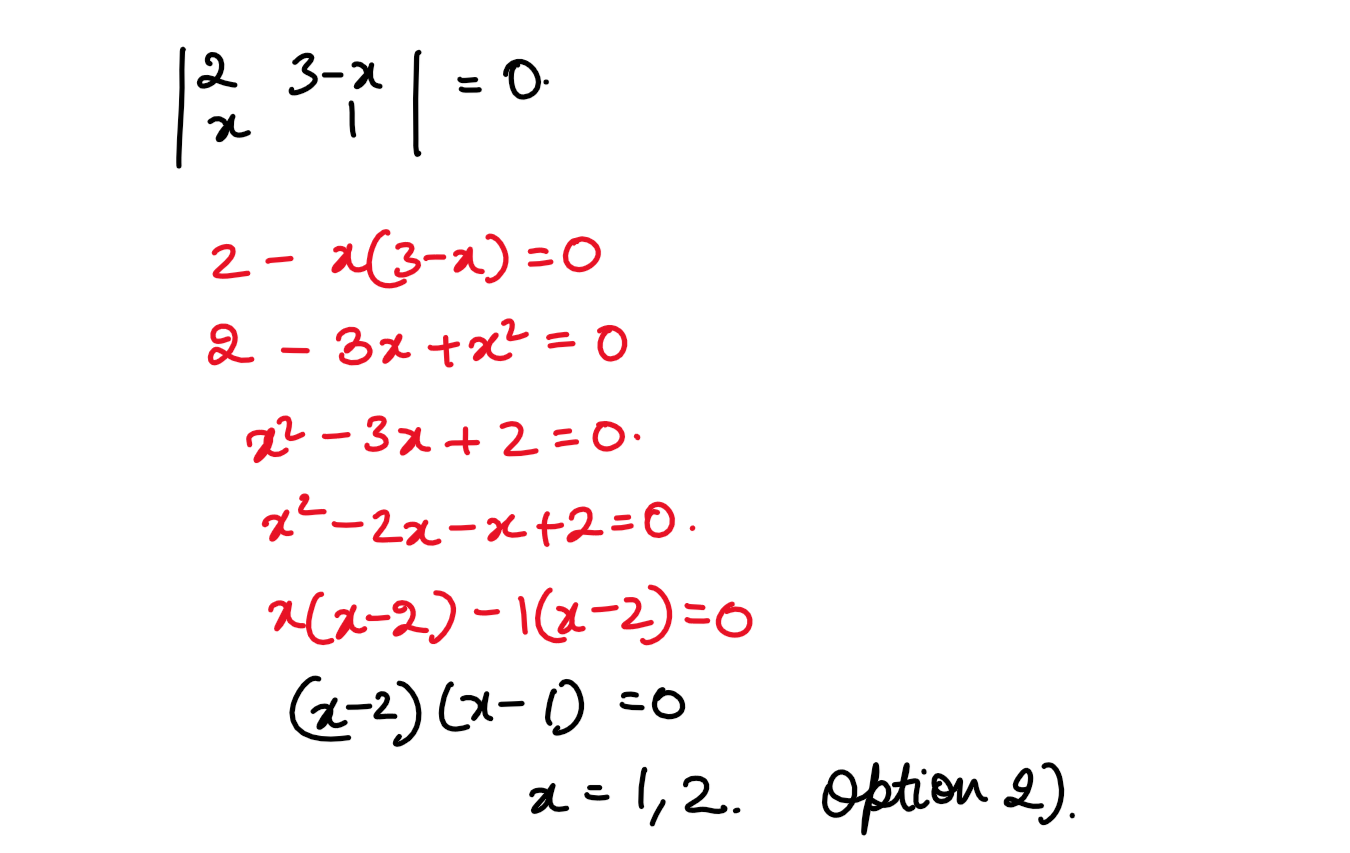 | 2 3-x | = 0.
| x 1 |
2 - x(3-x) = 0
2 - 3x + x² = 0
x² - 3x + 2 = 0.
x² - 2x - x + 2 = 0.
x(x-2) - 1(x-2) = 0
(x-2) (x-1) = 0
x = 1, 2. Option 2).